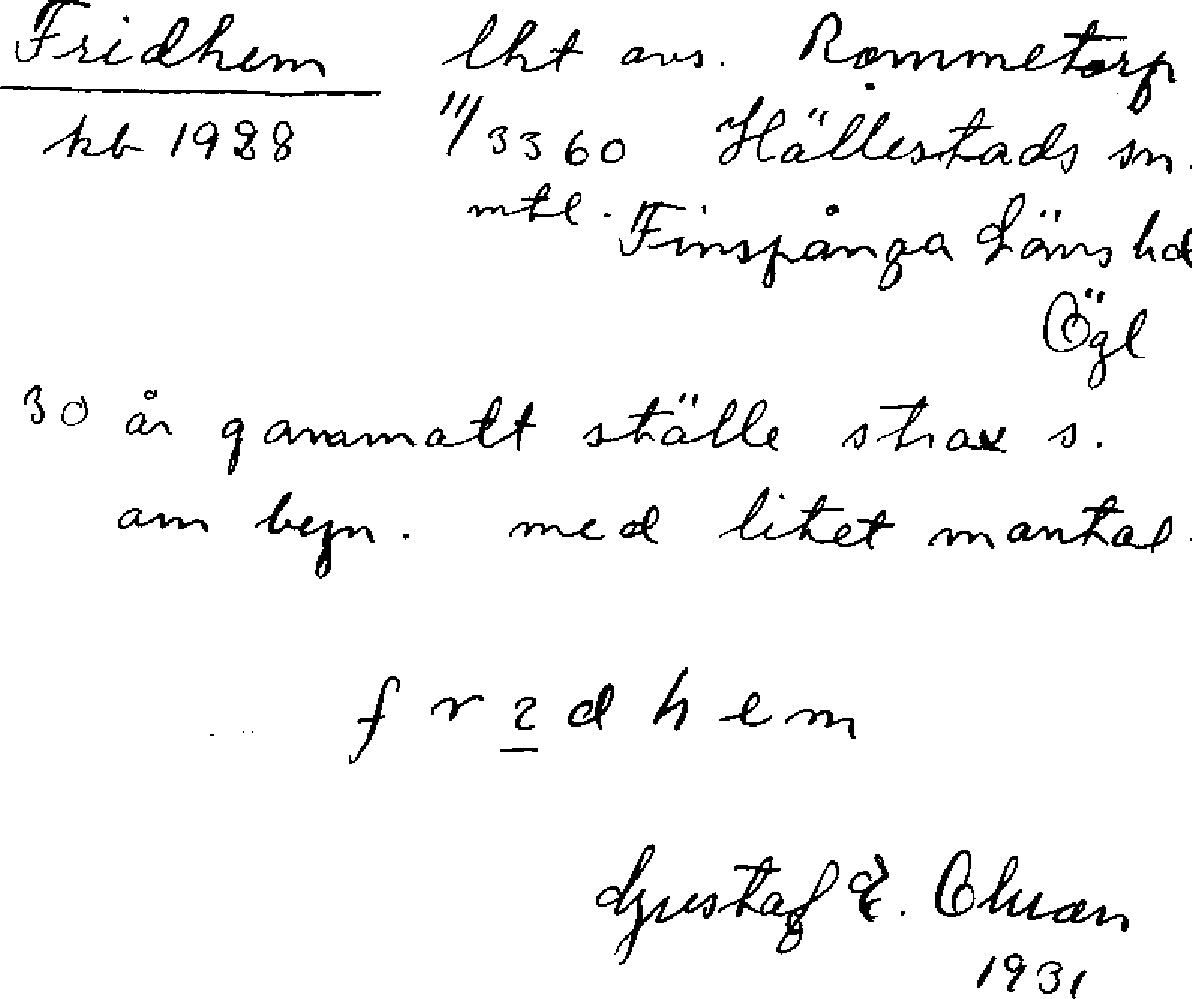 Fridhem lht avs. Rommetorp
kb 1928 11/3360 Hällestads sn.
mtl. Finspånga Läns hd
Ögl
30 år gammalt ställe strax s.
om byn. med litet mantal.
f r 2 d h e m
Gustaf E.
1931